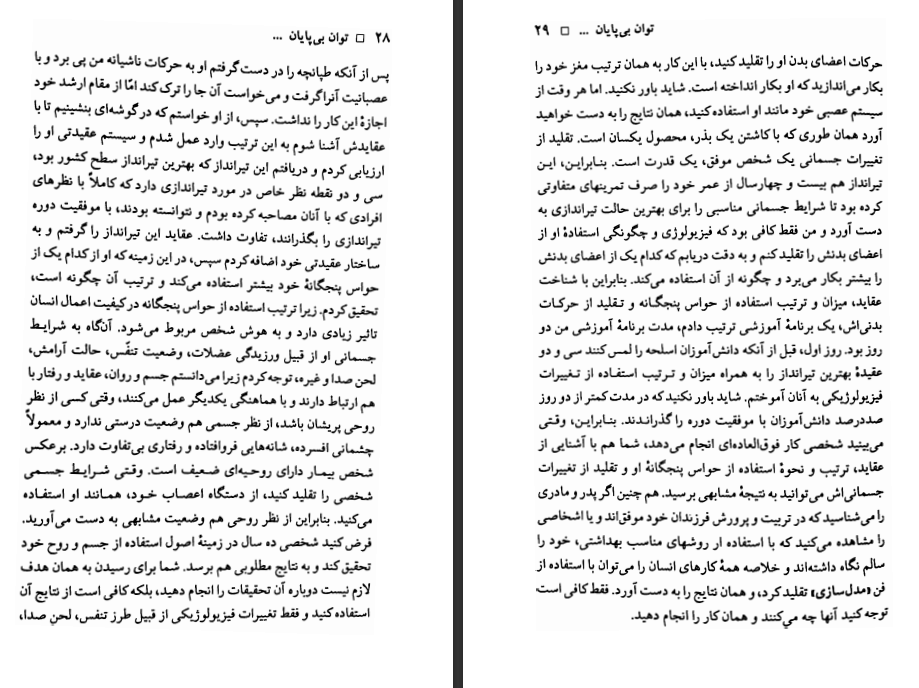 ۲۸ □ توان بی‌پایان ...
پس از آنکه طپانچه را در دست گرفتم او به حرکات ناشیانه من پی برد و با
عصبانیت آنرا گرفت و می‌خواست آن جا را ترک کند امّا از مقام ارشد خود
اجازهٔ این کار را نداشت. سپس، از او خواستم که در گوشه‌ای بنشینیم تا با
عقایدش آشنا شوم به این ترتیب وارد عمل شدم و سیستم عقیدتی او را
ارزیابی کردم و دریافتم این تیرانداز که بهترین تیرانداز سطح کشور بود،
سی و دو نقطه نظر خاص در مورد تیراندازی دارد که کاملاً با نظرهای
افرادی که با آنان مصاحبه کرده بودم و نتوانسته بودند، با موفقیت دوره
تیراندازی را بگذرانند، تفاوت داشت. عقاید این تیرانداز را گرفتم و به
ساختار عقیدتی خود اضافه کردم سپس، در این زمینه که او از کدام یک از
حواس پنجگانهٔ خود بیشتر استفاده می‌کند و ترتیب آن چگونه است،
تحقیق کردم. زیرا ترتیب استفاده از حواس پنجگانه در کیفیت اعمال انسان
تاثیر زیادی دارد و به هوش شخص مربوط می‌شود. آن‌گاه به شرایط
جسمانی او از قبیل ورزیدگی عضلات، وضعیت تنفّس، حالت آرامش،
لحن صدا و غیره، توجه کردم زیرا می‌دانستم جسم و روان، عقاید و رفتار با
هم ارتباط دارند و با هماهنگی یکدیگر عمل می‌کنند، وقتی کسی از نظر
روحی پریشان باشد، از نظر جسمی هم وضعیت درستی ندارد و معمولاً
چشمانی افسرده، شانه‌هایی فروافتاده و رفتاری بی‌تفاوت دارد. برعکس
شخص بیمار دارای روحیه‌ای ضعیف است. وقتی شرایط جسمی
شخصی را تقلید کنید، از دستگاه اعصاب خود، همانند او استفاده
می‌کنید. بنابراین از نظر روحی هم وضعیت مشابهی به دست می‌آورید.
فرض کنید شخصی ده سال در زمینهٔ اصول استفاده از جسم و روح خود
تحقیق کند و به نتایج مطلوبی هم برسد. شما برای رسیدن به همان هدف
لازم نیست دوباره آن تحقیقات را انجام دهید، بلکه کافی است از نتایج آن
استفاده کنید و فقط تغییرات فیزیولوژیکی از قبیل طرز تنفس، لحن صدا،
توان بی‌پایان ... □ ۲۹
حرکات اعضای بدن او را تقلید کنید، با این کار به همان ترتیب مغز خود را
بکار می‌اندازید که او بکار انداخته است. شاید باور نکنید. اما هر وقت از
سیستم عصبی خود مانند او استفاده کنید، همان نتایج را به دست خواهید
آورد همان طوری که با کاشتن یک بذر، محصول یکسان است. تقلید از
تغییرات جسمانی یک شخص موفق، یک قدرت است. بنابراین، این
تیرانداز هم بیست و چهارسال از عمر خود را صرف تمرینهای متفاوتی
کرده بود تا شرایط جسمانی مناسبی را برای بهترین حالت تیراندازی به
دست آورد و من فقط کافی بود که فیزیولوژی و چگونگی استفادهٔ او از
اعضای بدنش را تقلید کنم و به دقت دریابم که کدام یک از اعضای بدنش
را بیشتر بکار می‌برد و چگونه از آن استفاده می‌کند. بنابراین با شناخت
عقاید، میزان و ترتیب استفاده از حواس پنجگانه و تقلید از حرکات
بدنی‌اش، یک برنامهٔ آموزشی ترتیب دادم، مدت برنامهٔ آموزشی من دو
روز بود. روز اول، قبل از آنکه دانش‌آموزان اسلحه را لمس کنند سی و دو
عقیدهٔ بهترین تیرانداز را به همراه میزان و ترتیب استفاده از تغییرات
فیزیولوژیکی به آنان آموختم. شاید باور نکنید که در مدت کمتر از دو روز
صددرصد دانش‌آموزان با موفقیت دوره را گذراندند. بنابراین، وقتی
می‌بینید شخصی کار فوق‌العاده‌ای انجام می‌دهد، شما هم با آشنایی از
عقاید، ترتیب و نحوهٔ استفاده از حواس پنجگانهٔ او و تقلید از تغییرات
جسمانی‌اش می‌توانید به نتیجهٔ مشابهی برسید. هم چنین اگر پدر و مادری
را می‌شناسید که در تربیت و پرورش فرزندان خود موفق‌اند و یا اشخاصی
را مشاهده می‌کنید که با استفاده از روشهای مناسب بهداشتی، خود را
سالم نگاه داشته‌اند و خلاصه همهٔ کارهای انسان را می‌توان با استفاده از
فن «مدل‌سازی» تقلید کرد، و همان نتایج را به دست آورد. فقط کافی است
توجه کنید آنها چه می‌کنند و همان کار را انجام دهید.